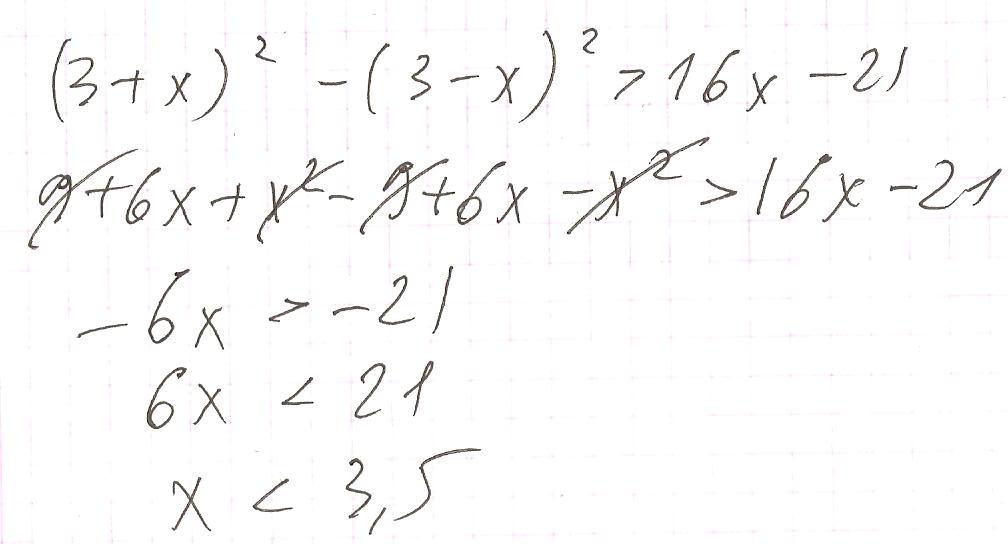 (3+x)² -(3-x)² > 16x -21
9+6x+x²-9+6x-x² > 16x-21
-6x > -21
6x < 21
x < 3,5